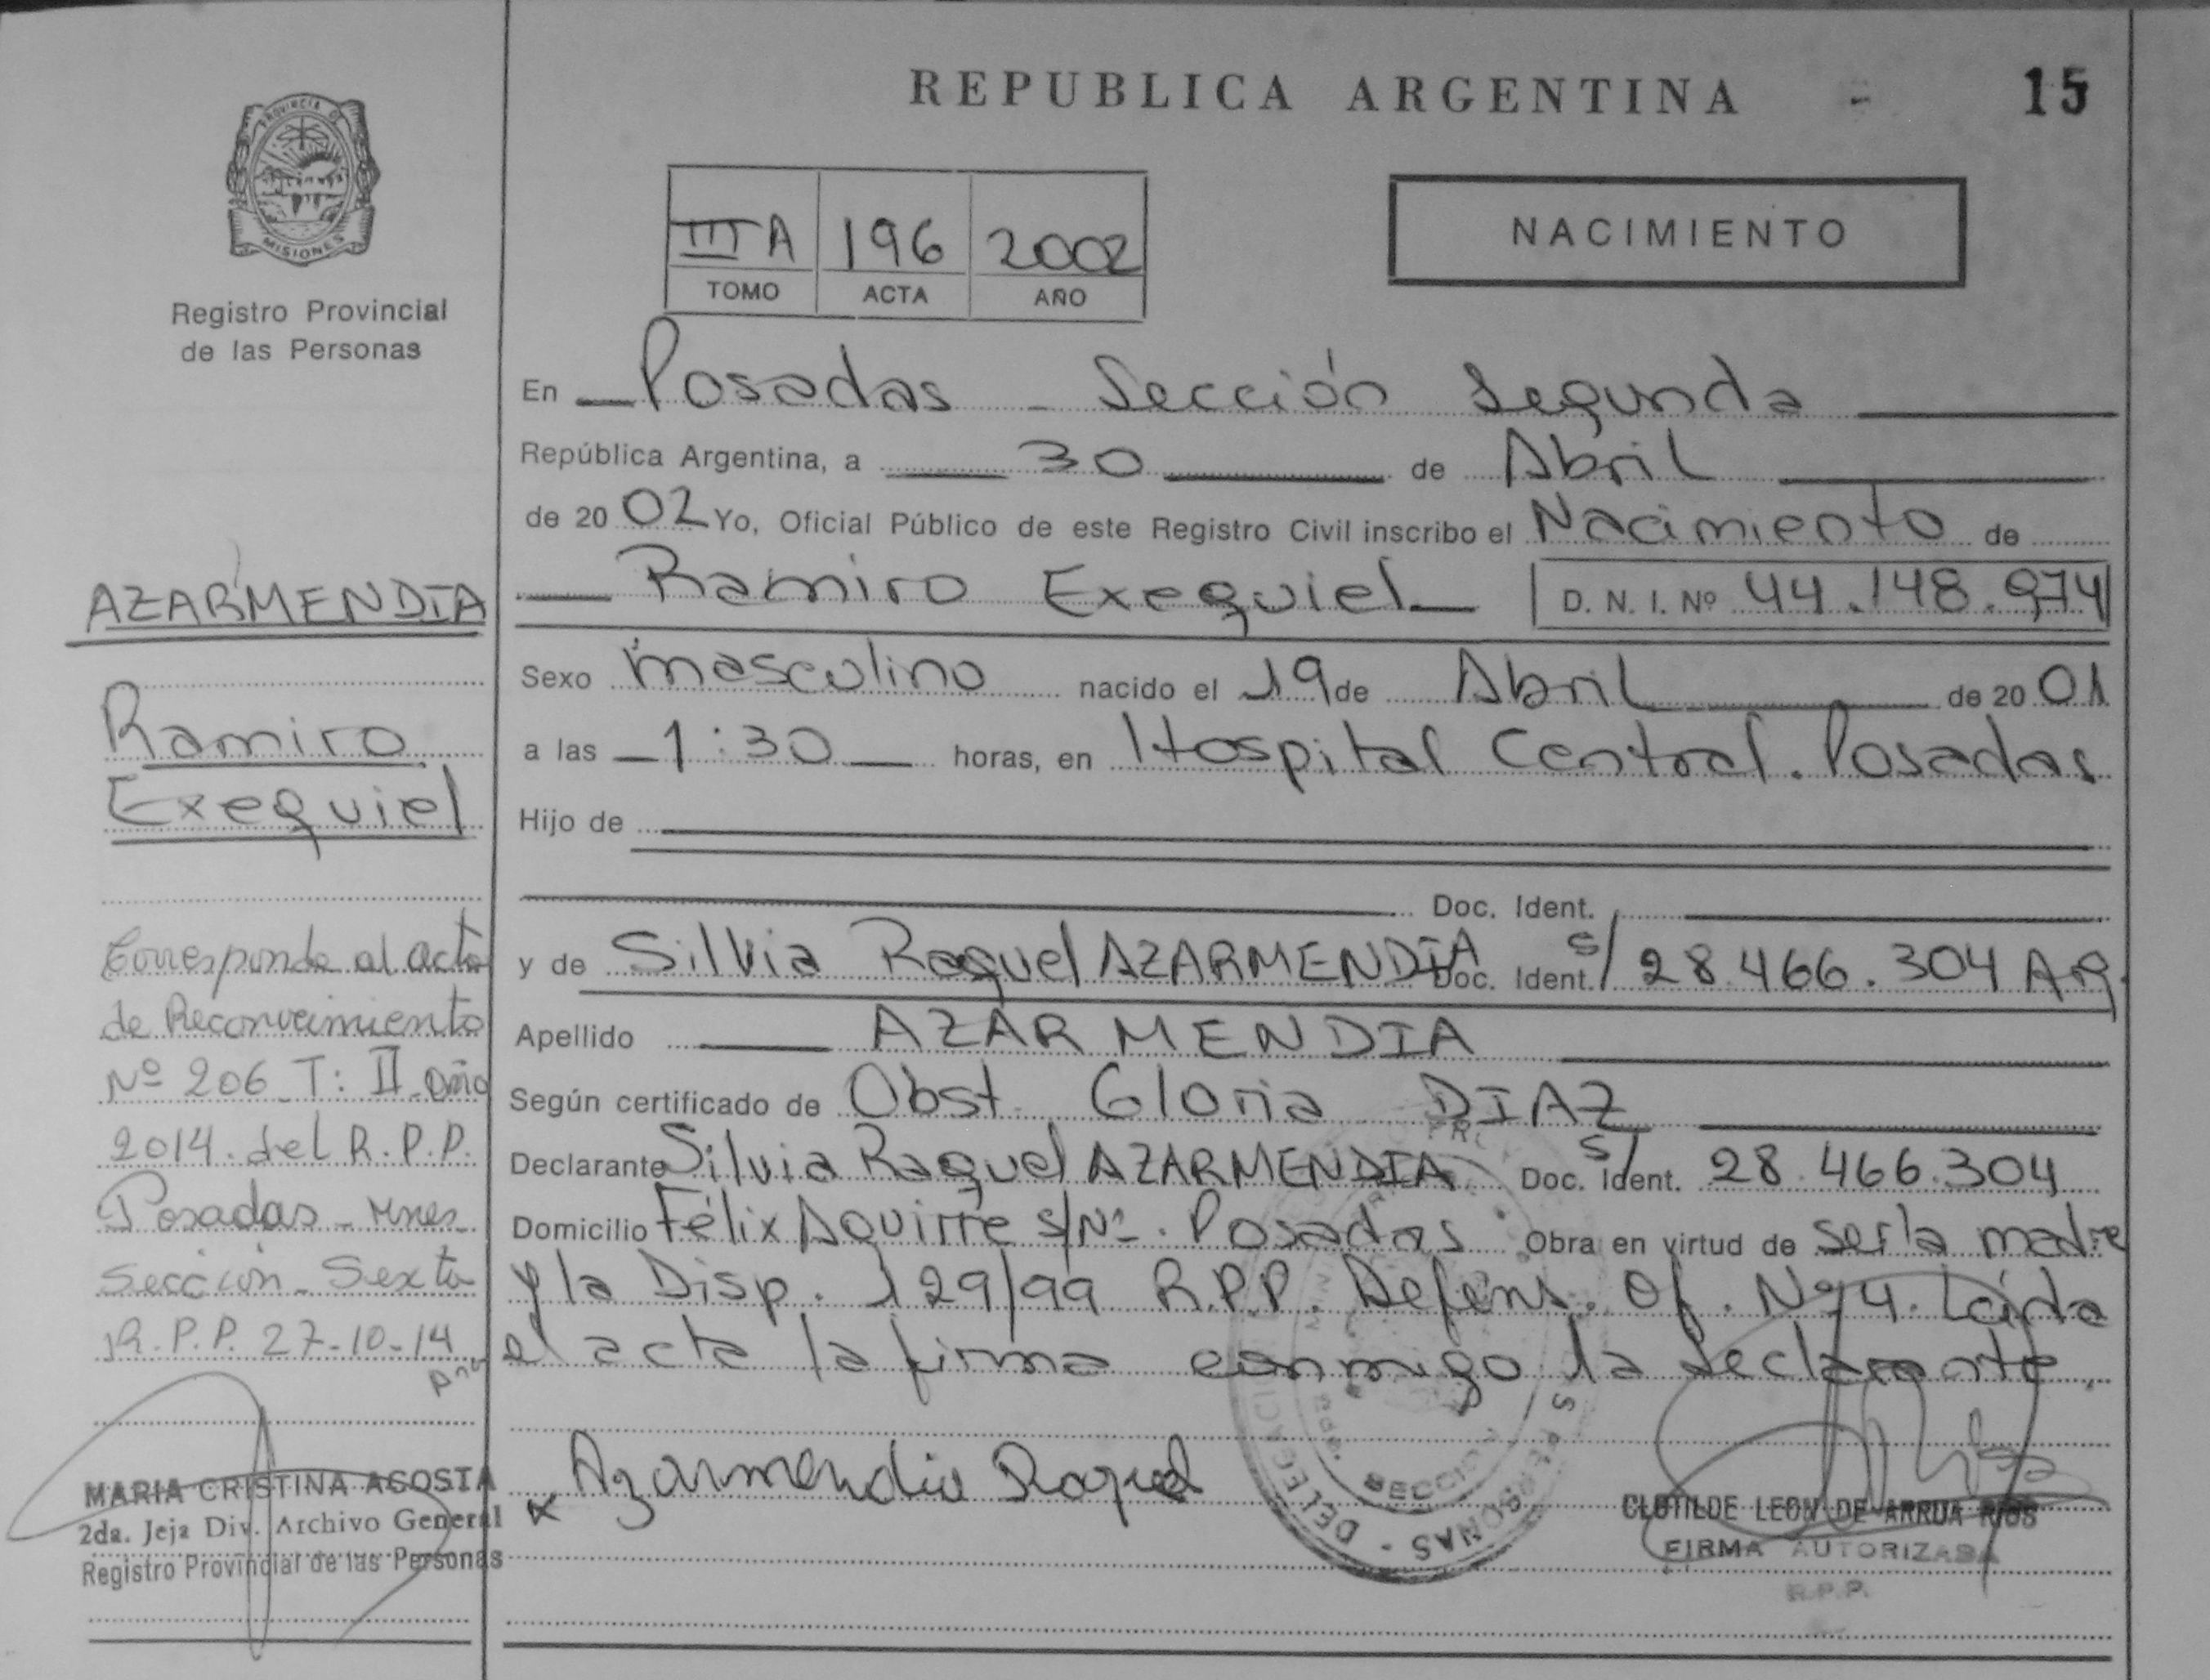 REPUBLICA ARGENTINA - 15
PROVINCIA DE
MISIONES
Registro Provincial
de las Personas
III A 196 2002
TOMO ACTA AÑO
NACIMIENTO
En Posadas - Sección Segunda
República Argentina, a 30 de Abril
de 2002 Yo, Oficial Público de este Registro Civil inscribo el Nacimiento de
Ramiro Exequiel D. N. I. Nº 44.148.974
Sexo masculino nacido el 19 de Abril de 2001
a las 1:30 horas, en Hospital Central. Posadas
Hijo de
Doc. Ident.
y de Silvia Raquel AZARMENDIA Doc. Ident. S/ 28.466.304 AR.
Apellido AZARMENDIA
Según certificado de Obst. Gloria DIAZ
Declarante Silvia Raquel AZARMENDIA Doc. Ident. S/ 28.466.304
Domicilio Félix Aguirre s/Nº. Posadas Obra en virtud de ser la madre
y la Disp. 129/99 R.P.P. Defens. Of. Nº 4. Leída
el acta la firma conmigo la declarante.
Azarmendia Raquel
CLOTILDE LEON DE ARRUA RIOS
FIRMA AUTORIZADA
R.P.P.
DELEGACION
SECCION
AZARMENDIA
Ramiro
Exequiel
Corresponde al acta
de Reconocimiento
Nº 206 T: II año
2014 del R.P.P.
Posadas - Mnes
Sección - Sexta
R.P.P. 27-10-14
MARIA CRISTINA ACOSTA
2da. Jeja Div. Archivo General
Registro Provincial de las Personas